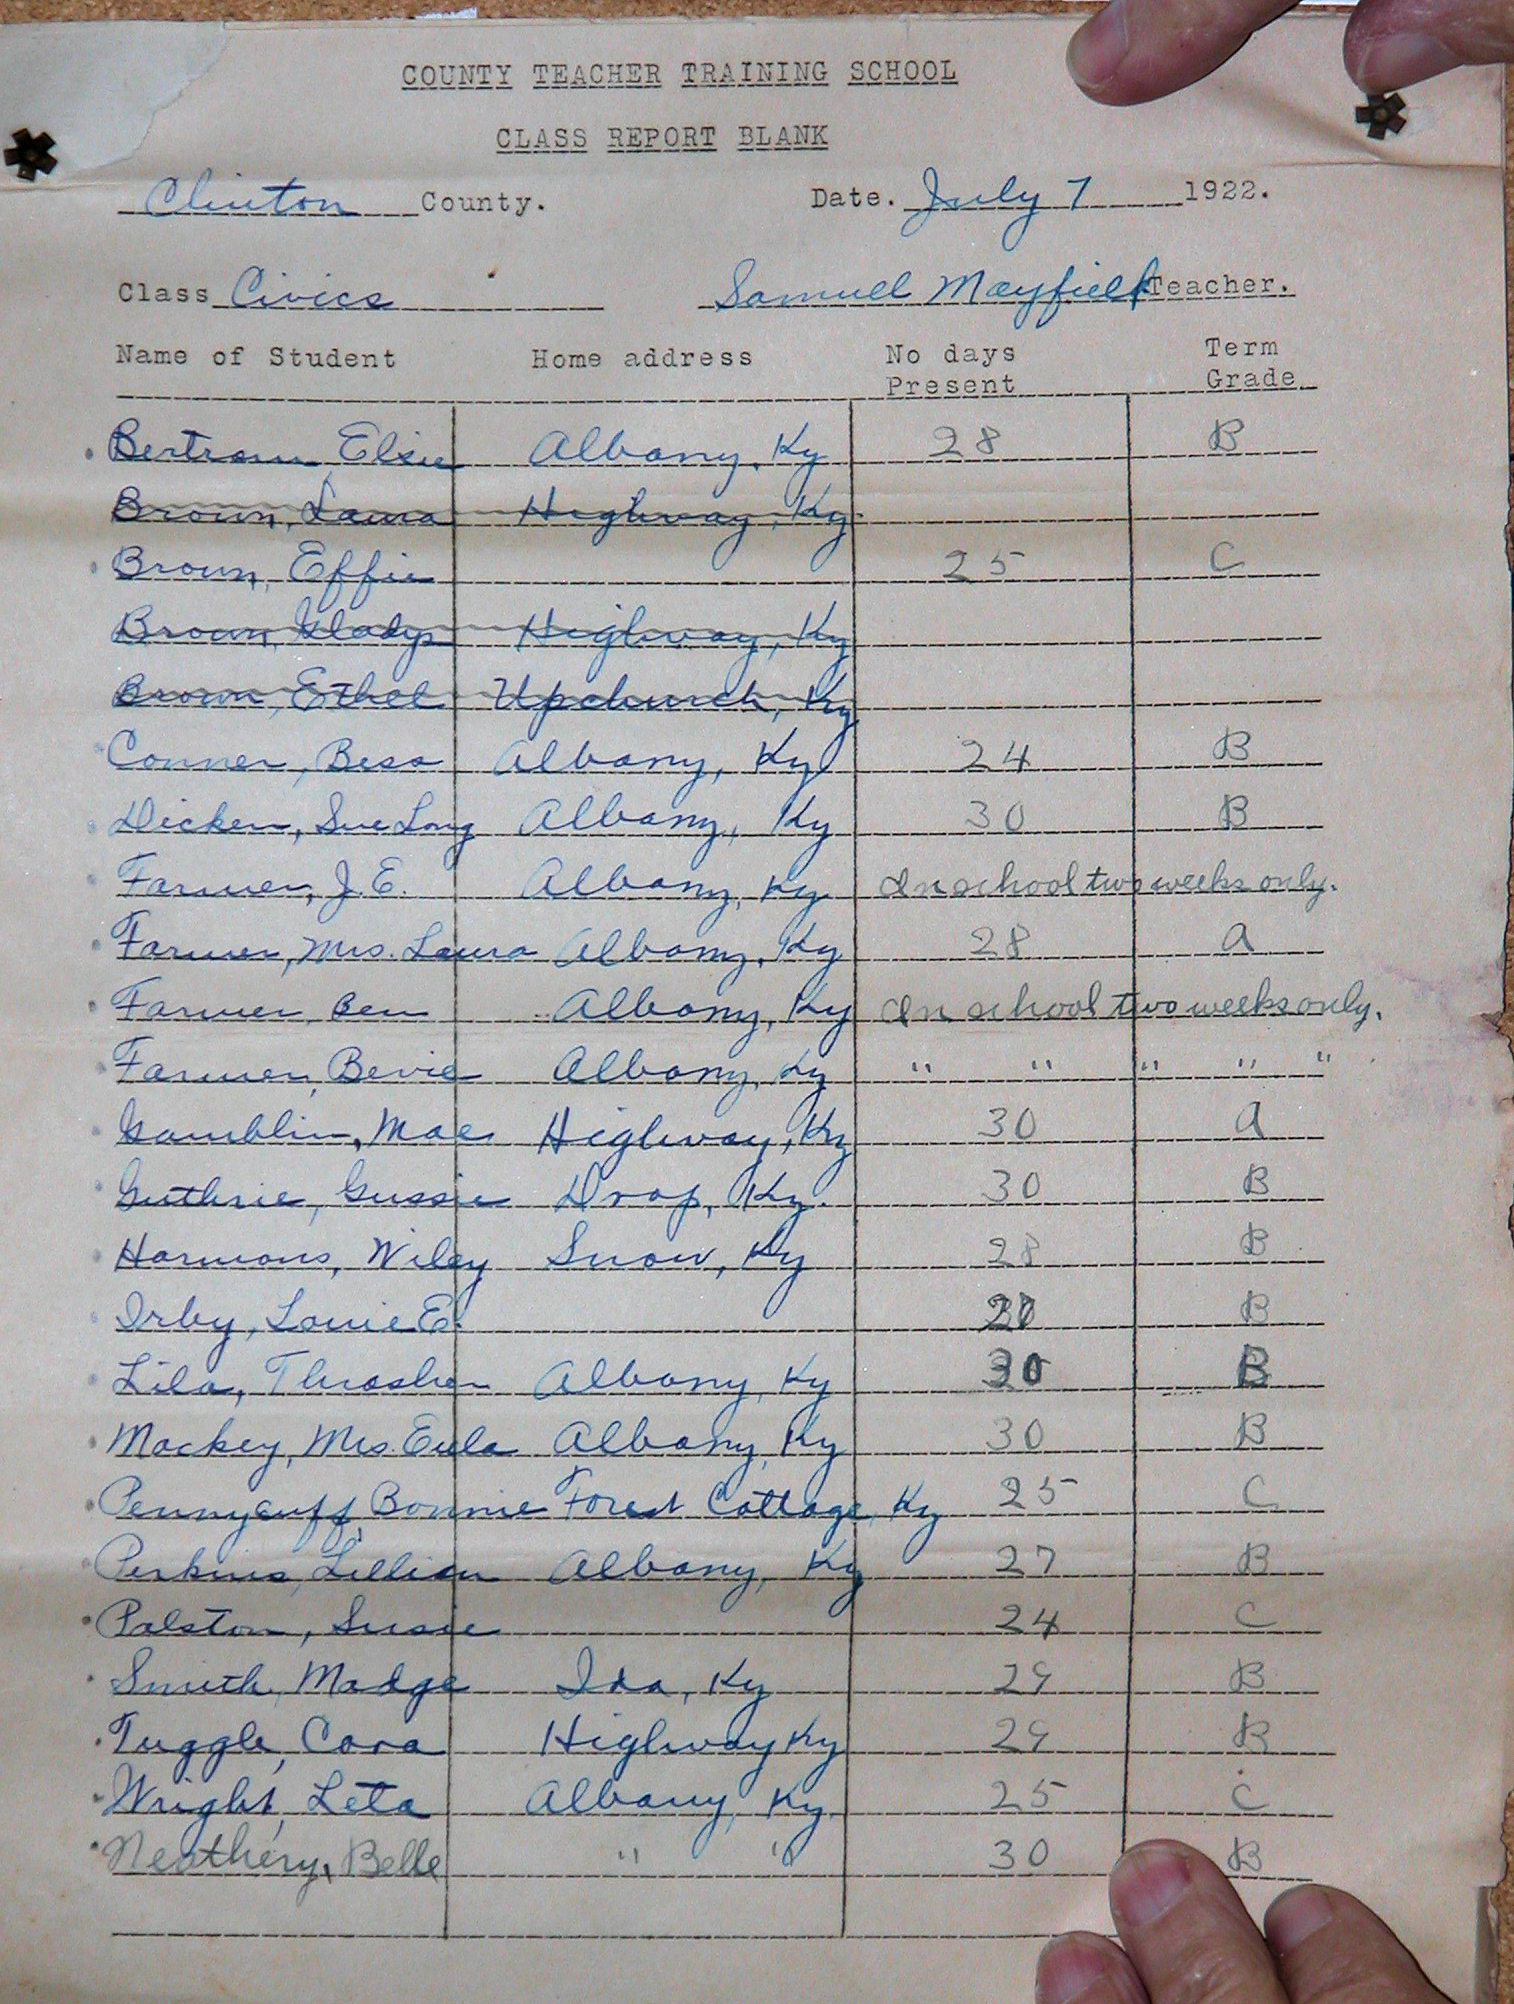 COUNTY TEACHER TRAINING SCHOOL
CLASS REPORT BLANK
Clinton County. Date. July 7 1922.
Class Civics Samuel Mayfield Teacher.
Name of Student Home address No days Present Term Grade
Bertram, Elsie Albany, Ky 28 B
Brown, Laura Highway, Ky.
Brown, Effie 25 C
Brown, Gladys Highway, Ky
Brown, Ethel Upchurch, Ky
Conner, Bess Albany, Ky 24 B
Dicken, Sue Long Albany, Ky 30 B
Farmer, J.E. Albany, Ky In school two weeks only.
Farmer, Mrs. Laura Albany, Ky 28 A
Farmer, Ben Albany, Ky In school two weeks only.
Farmer, Bevie Albany, Ky " " " " "
Gamblin, Mae Highway, Ky 30 A
Guthrie, Gussie Drop, Ky. 30 B
Harmons, Wiley Snow, Ky 28 B
Irby, Louie E. B
Lila, Thrasher Albany, Ky 30 B
Mackey, Mrs. Eula Albany, Ky 30 B
Pennycuff, Bonnie Forest Cottage, Ky 25 C
Perkins, Lillian Albany, Ky 27 B
Ralston, Susie 24 C
Smith, Madge Ida, Ky 29 B
Tuggle, Cora Highway Ky 29 B
Wright, Leta Albany, Ky. 25 C
Neathery, Belle " " 30 B